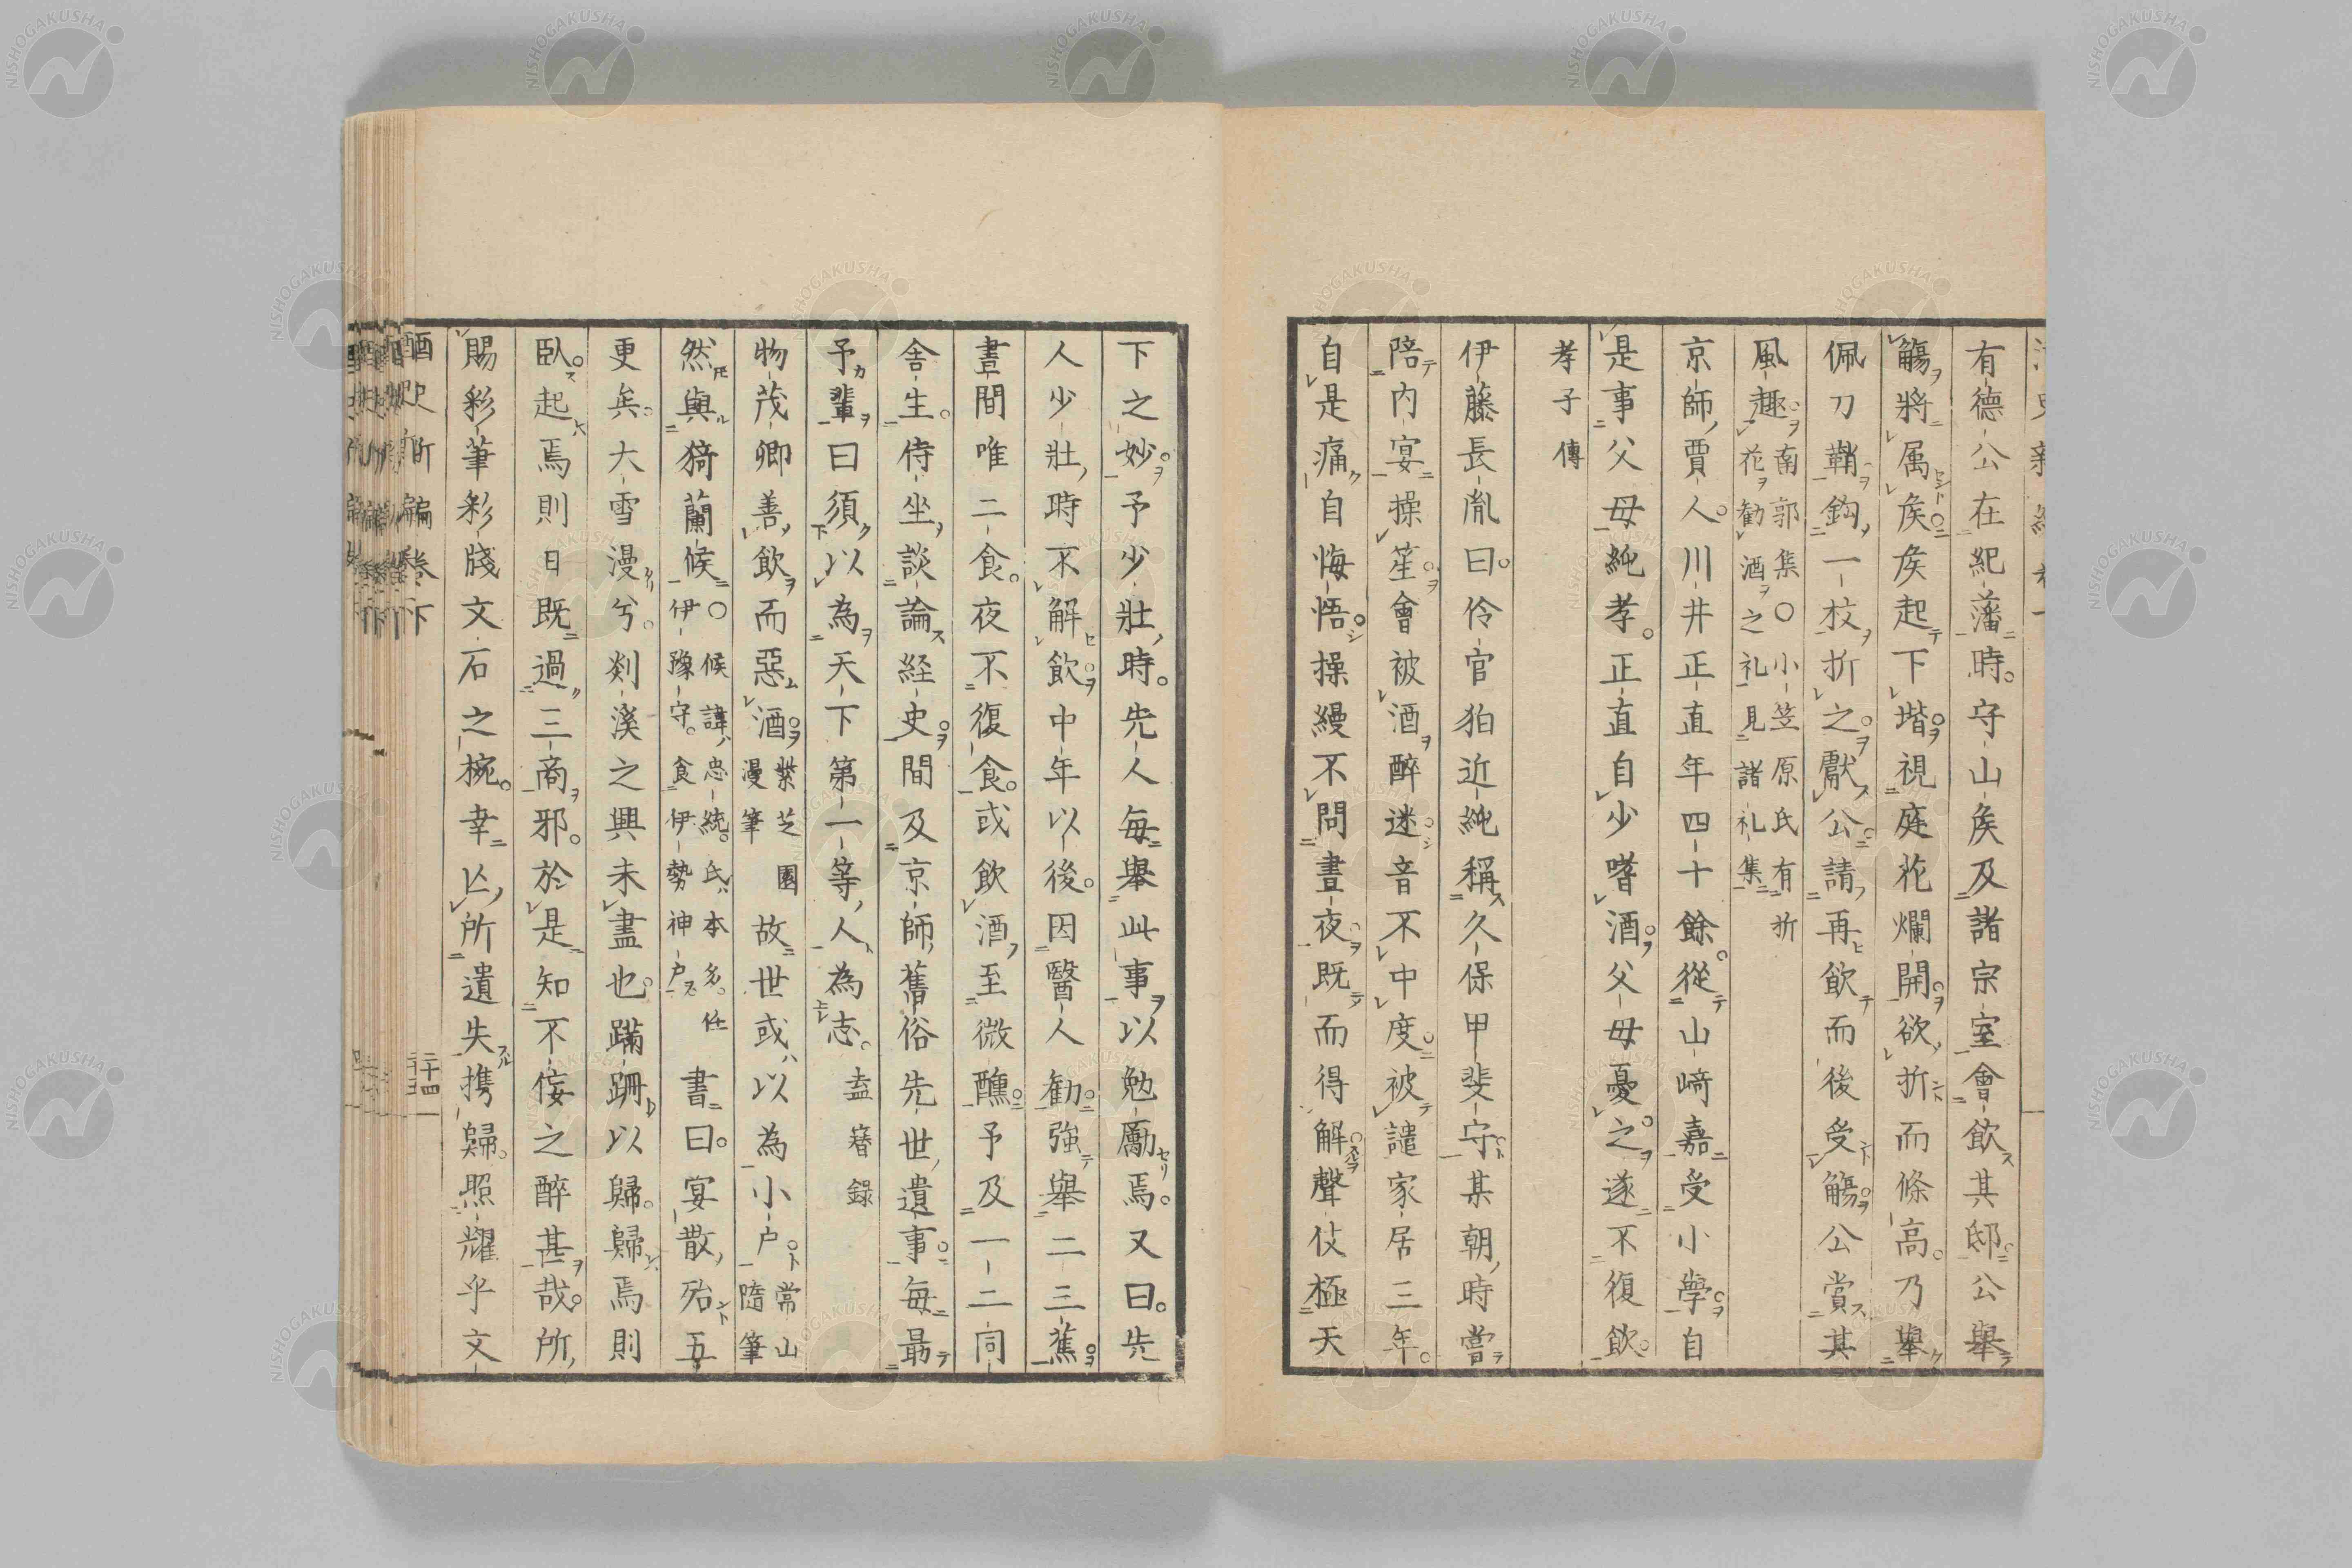 有德公在紀藩時。守山矦及諸宗室會飲其邸公舉
觴將属矦矦起下堦視庭花爛開欲折而條高。乃舉
佩刀鞘鈎一枝折之獻公請再飲而後受觴公賞其
風趣南郭集〇小笠原氏有折
花勸酒之礼見諸礼集
京師賈人。川井正直年四十餘。從山﨑嘉受小學自
是事父母純孝。正直自少嗜酒父母憂之遂不復飲。
孝子傳
伊藤長胤曰。伶官狛近純稱久保甲斐守某朝時嘗
陪内宴操笙會被酒醉迷音不中度被譴家居三年。
自是痛自悔悟操縵不問晝夜既而得解聲伎極天
下之妙予少壯時。先人每舉此事以勉勵焉。又曰。先
人少壯時不解飲中年以後。因醫人勸強舉二三蕉
晝間唯二食。夜不復食。或飲酒至微醺予及一二同
舍生。侍坐談論経史間及京師舊俗先世遺事每最
予輩曰須以為天下第一等人為志。盍簪錄
物茂卿善飲而惡酒紫芝園
漫筆故世或以為小户常山
隨筆
然與猗蘭候〇候諱忠統。氏本多。任
伊豫守。食伊勢神户書曰。宴散殆五
更矣。大雪漫兮。剡溪之興未盡也。蹣跚以歸。歸焉則
臥起焉則日既過三商邪。於是知不佞之醉甚哉。所
賜彩筆彩牋文石之椀。幸亾所遺失携歸。照耀乎文
二十四